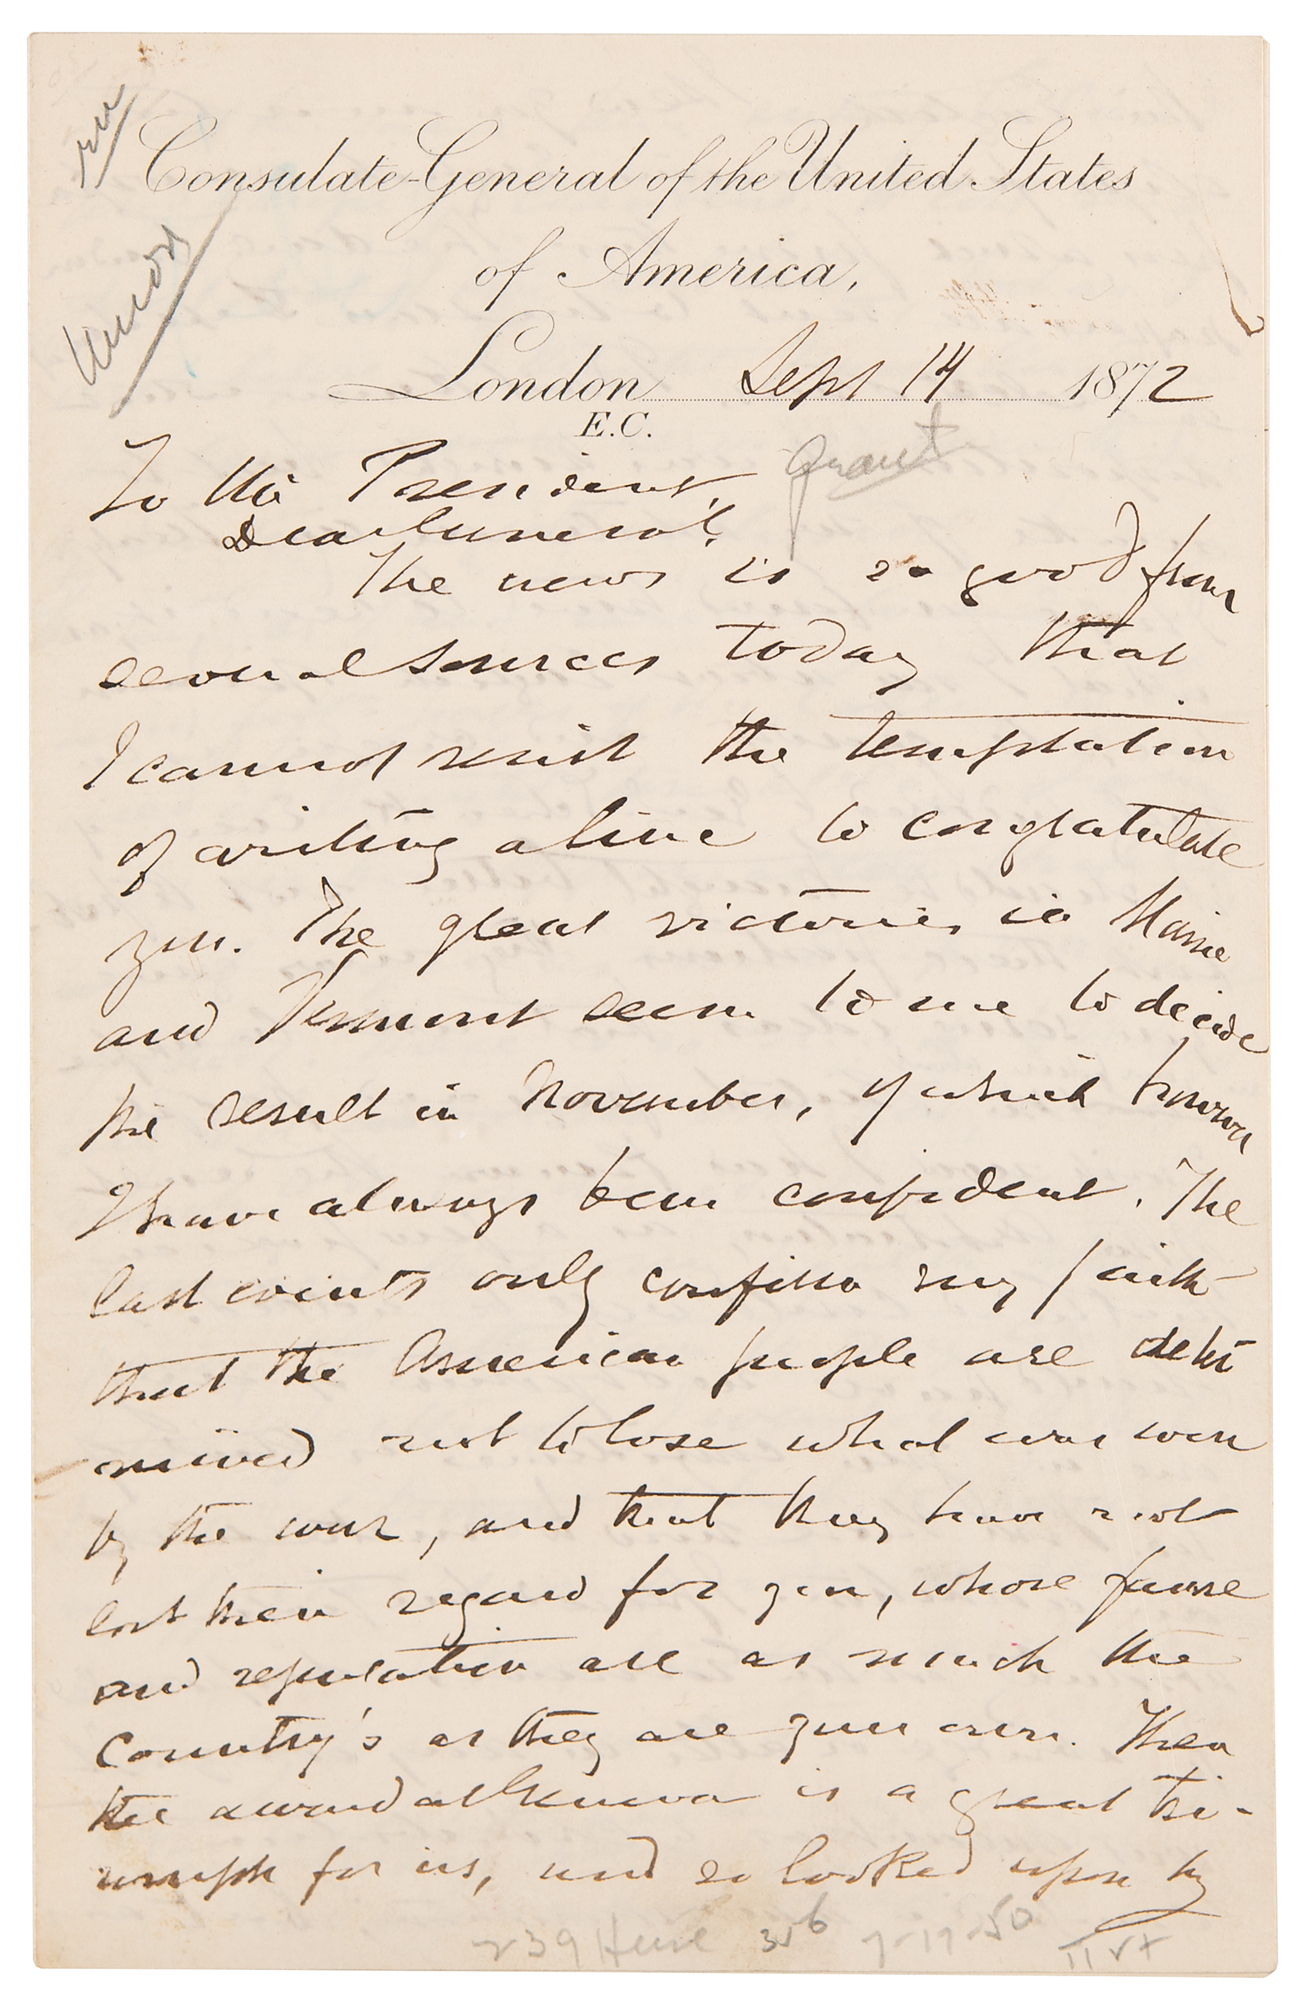 Consulate-General of the United States
of America,
London Sept 14 1872
E.C.
To the President, Grant
Dear General.
The news is so good from
several sources today that
I cannot resist the temptation
of writing a line to congratulate
you. The great victories in Maine
and Vermont seem to me to decide
the result in November, of which however
I have always been confident. The
last events only confirm my faith
that the American people are deter
mined not to lose what was won
by the war, and that they have not
lost their regard for you, whose fame
and reputation are as much the
Country's as they are your own. Then
the award at Geneva is a great tri-
umph for us, and so looked upon by
239 356 7-19-50